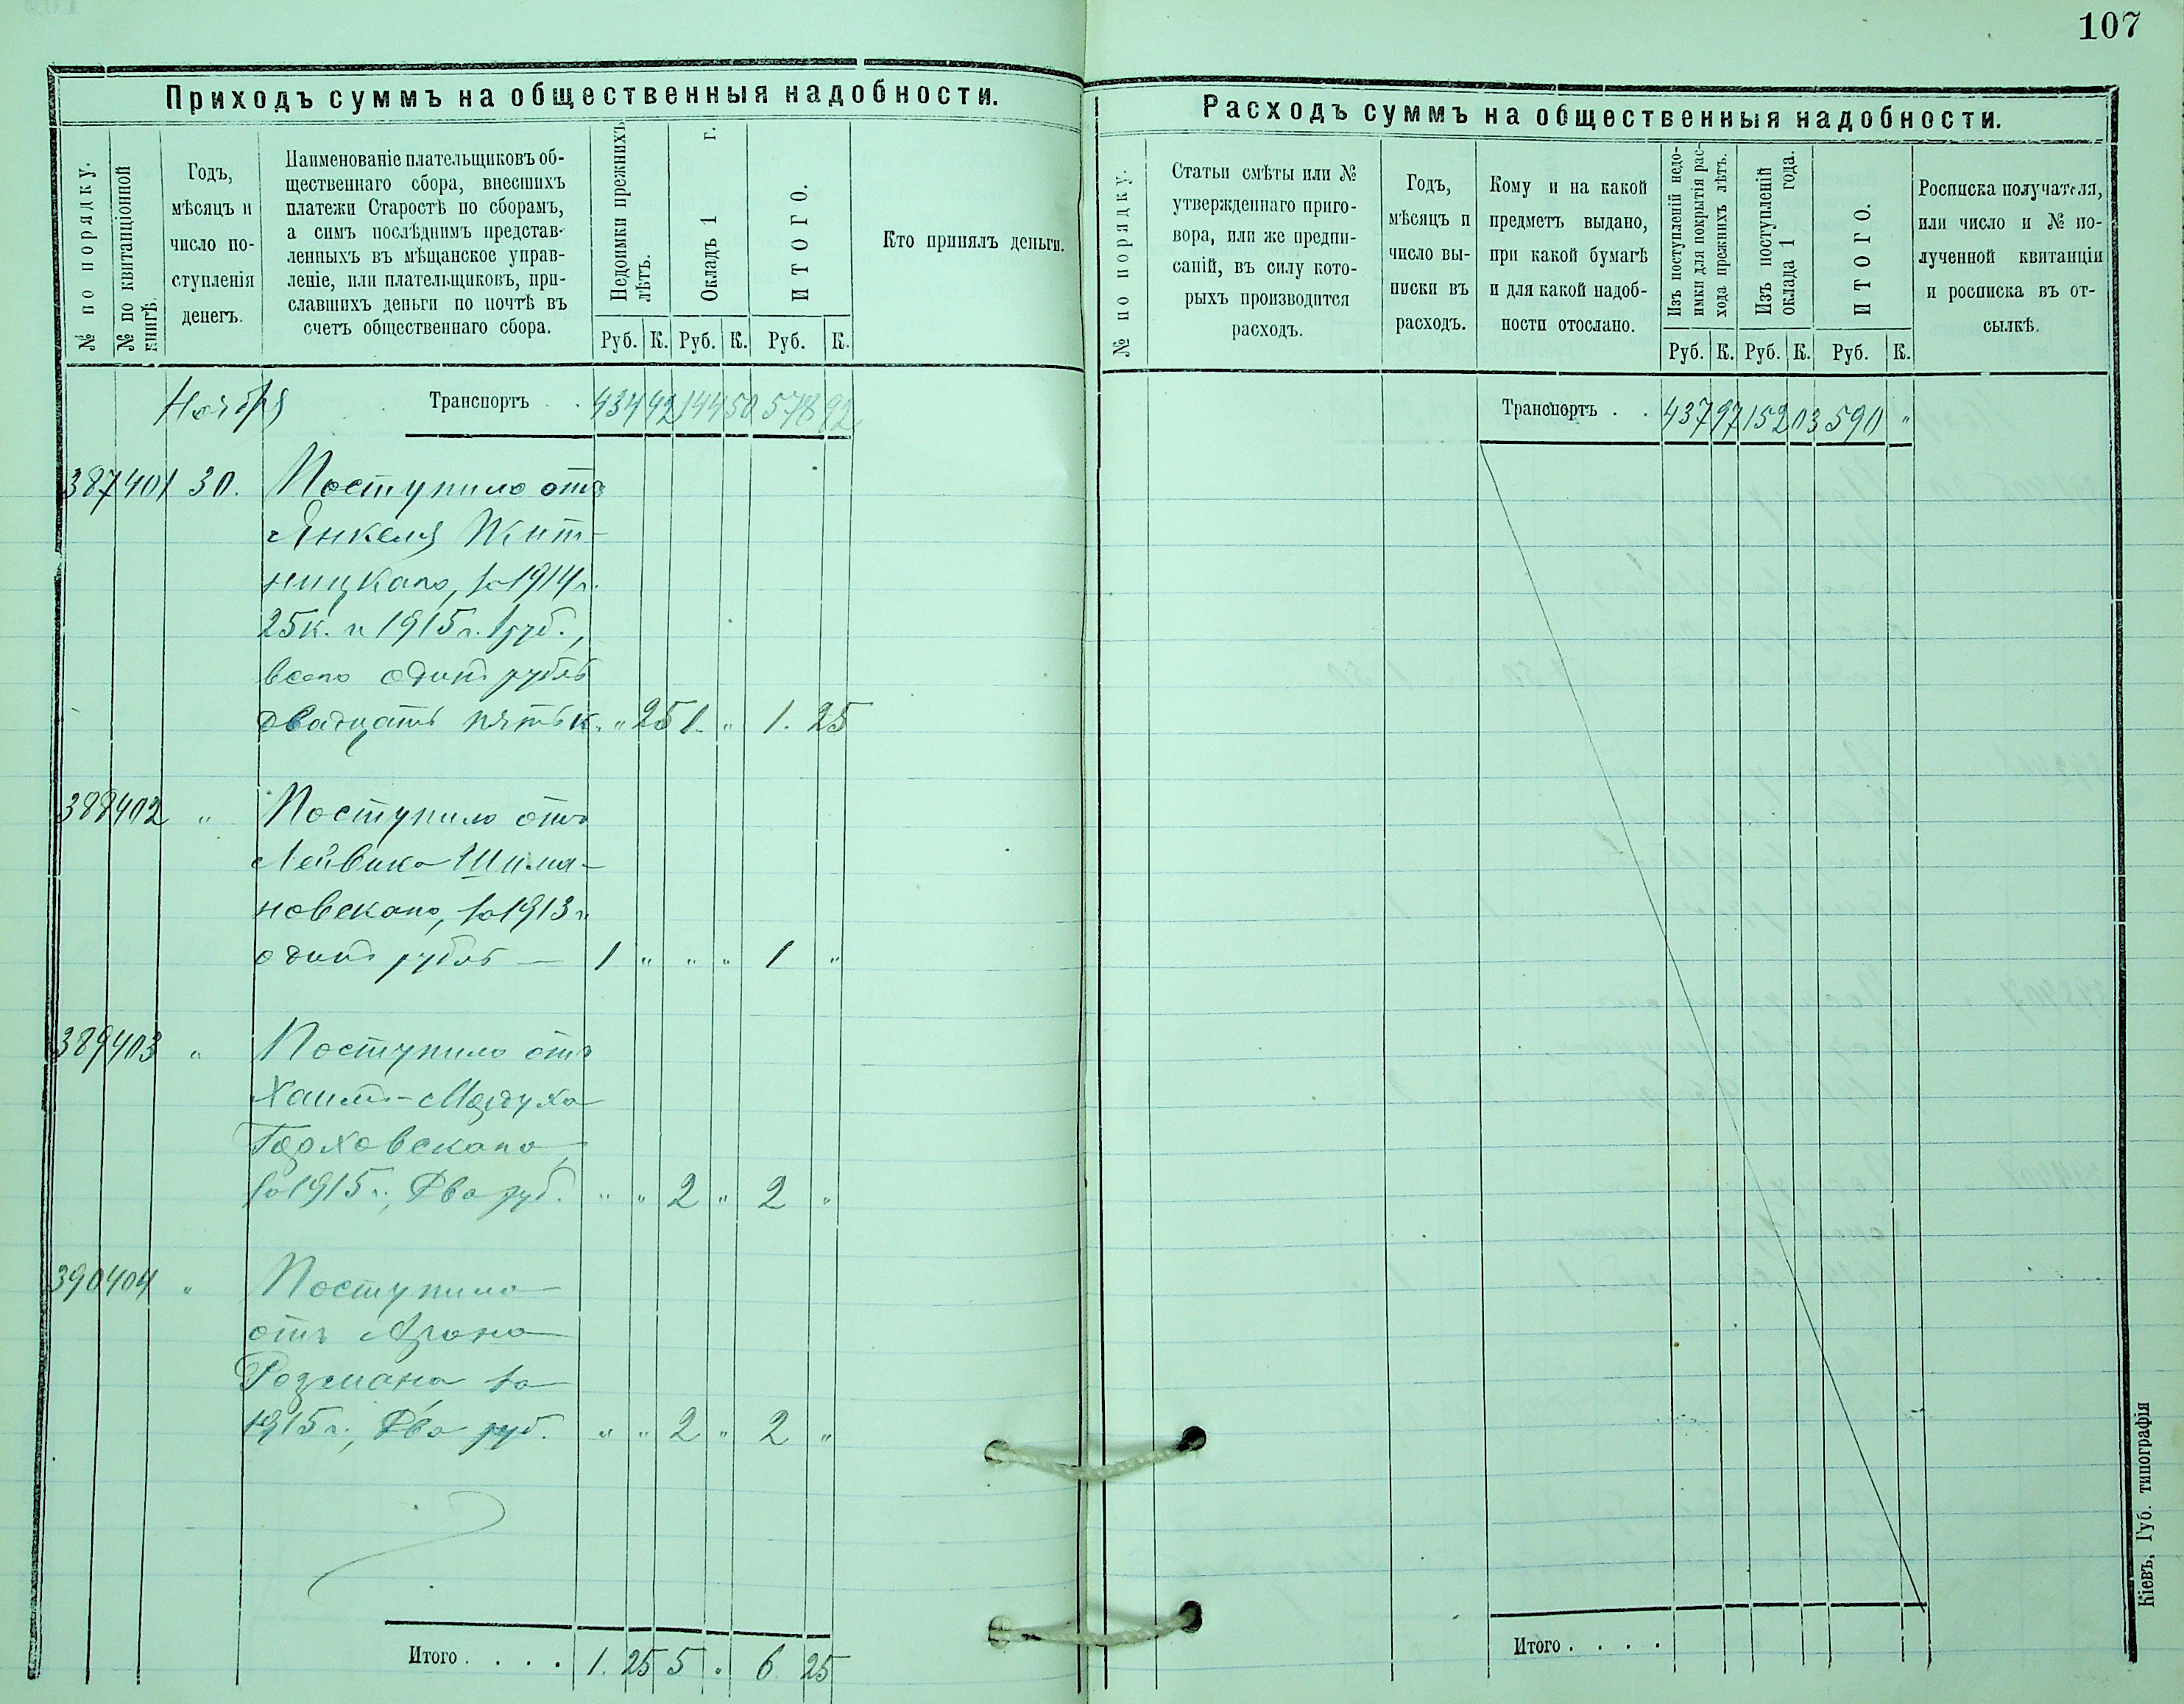 107
Приходъ суммъ на общественныя надобности.
№ по порядку.
№ по квитанціонной
книгѣ.
Годъ,
мѣсяцъ и
число по-
ступленія
денегъ.
Наименованіе плательщиковъ об-
щественнаго сбора, внесшихъ
платежи Старостѣ по сборамъ,
а симъ послѣднимъ представ-
ленныхъ въ мѣщанское управ-
леніе, или плательщиковъ, при-
славшихъ деньги по почтѣ въ
счетъ общественнаго сбора.
Недоимки прежнихъ
лѣтъ.
Окладъ 1 г.
ИТОГО.
Руб. К. Руб. К. Руб. К.
Кто принялъ деньги.
Ноября Транспортъ . . 434 42 144 50 578 92
387 401 30. Поступило отъ
Янкеля Жит-
ницкаго, за 1914 г.
25 к. и 1915 г. 1 руб.,
всего одинъ рубль
двадцать пять к. " 25 1. " 1. 25
388 402 " Поступило отъ
Лейвика Шима-
новскаго, за 1913 г.
одинъ рубль — 1 " " " 1 "
389 403 " Поступило отъ
Хаимъ-Мордуха
Горховскаго,
за 1915 г., Два руб. " " 2 " 2 "
390 404 " Поступило
отъ Арона
Розмана за
1915 г., Два руб. " " 2 " 2 "
Итого . . . . 1. 25 5 . 6. 25
Расходъ суммъ на общественныя надобности.
№ по порядку.
Статьи смѣты или №
утвержденнаго приго-
вора, или же предпи-
саній, въ силу кото-
рыхъ производится
расходъ.
Годъ,
мѣсяцъ и
число вы-
писки въ
расходъ.
Кому и на какой
предметъ выдано,
при какой бумагѣ
и для какой надоб-
ности отослано.
Изъ поступленій недо-
имки для покрытія рас-
хода прежнихъ лѣтъ.
Изъ поступленій
оклада 1 года.
ИТОГО.
Руб. К. Руб. К. Руб. К.
Росписка получателя,
или число и № по-
лученной квитанціи
и росписка въ от-
сылкѣ.
Транспортъ . . 437 97 152 03 590 "
Итого . . . .
Кіевъ, Губ. типографія